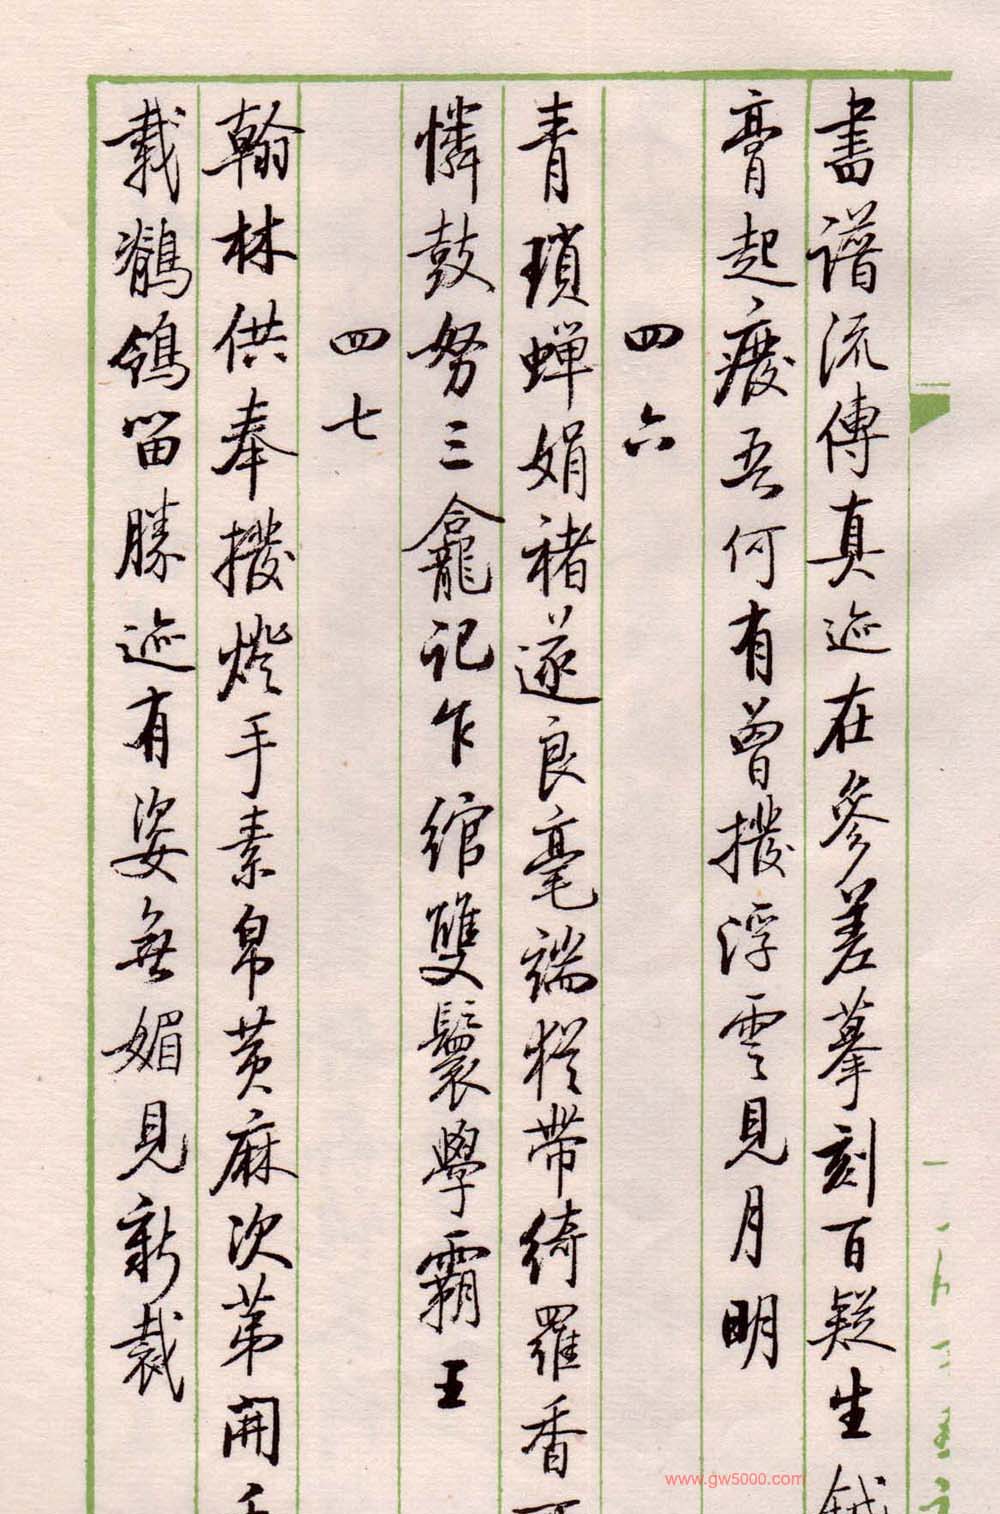 書譜流傳真迹在參差摹刻百疑生鍼
膏起廢吾何有曾撥浮雲見月明
四六
青瑣蟬娟褚遂良毫端猶帶綺羅香可
憐鼓努三龕記乍綰雙鬟學霸王
四七
翰林供奉撥燈手素帛黃麻次第開千
載鶺鴒留勝迹有姿無媚見新裁
www.gw5000.com